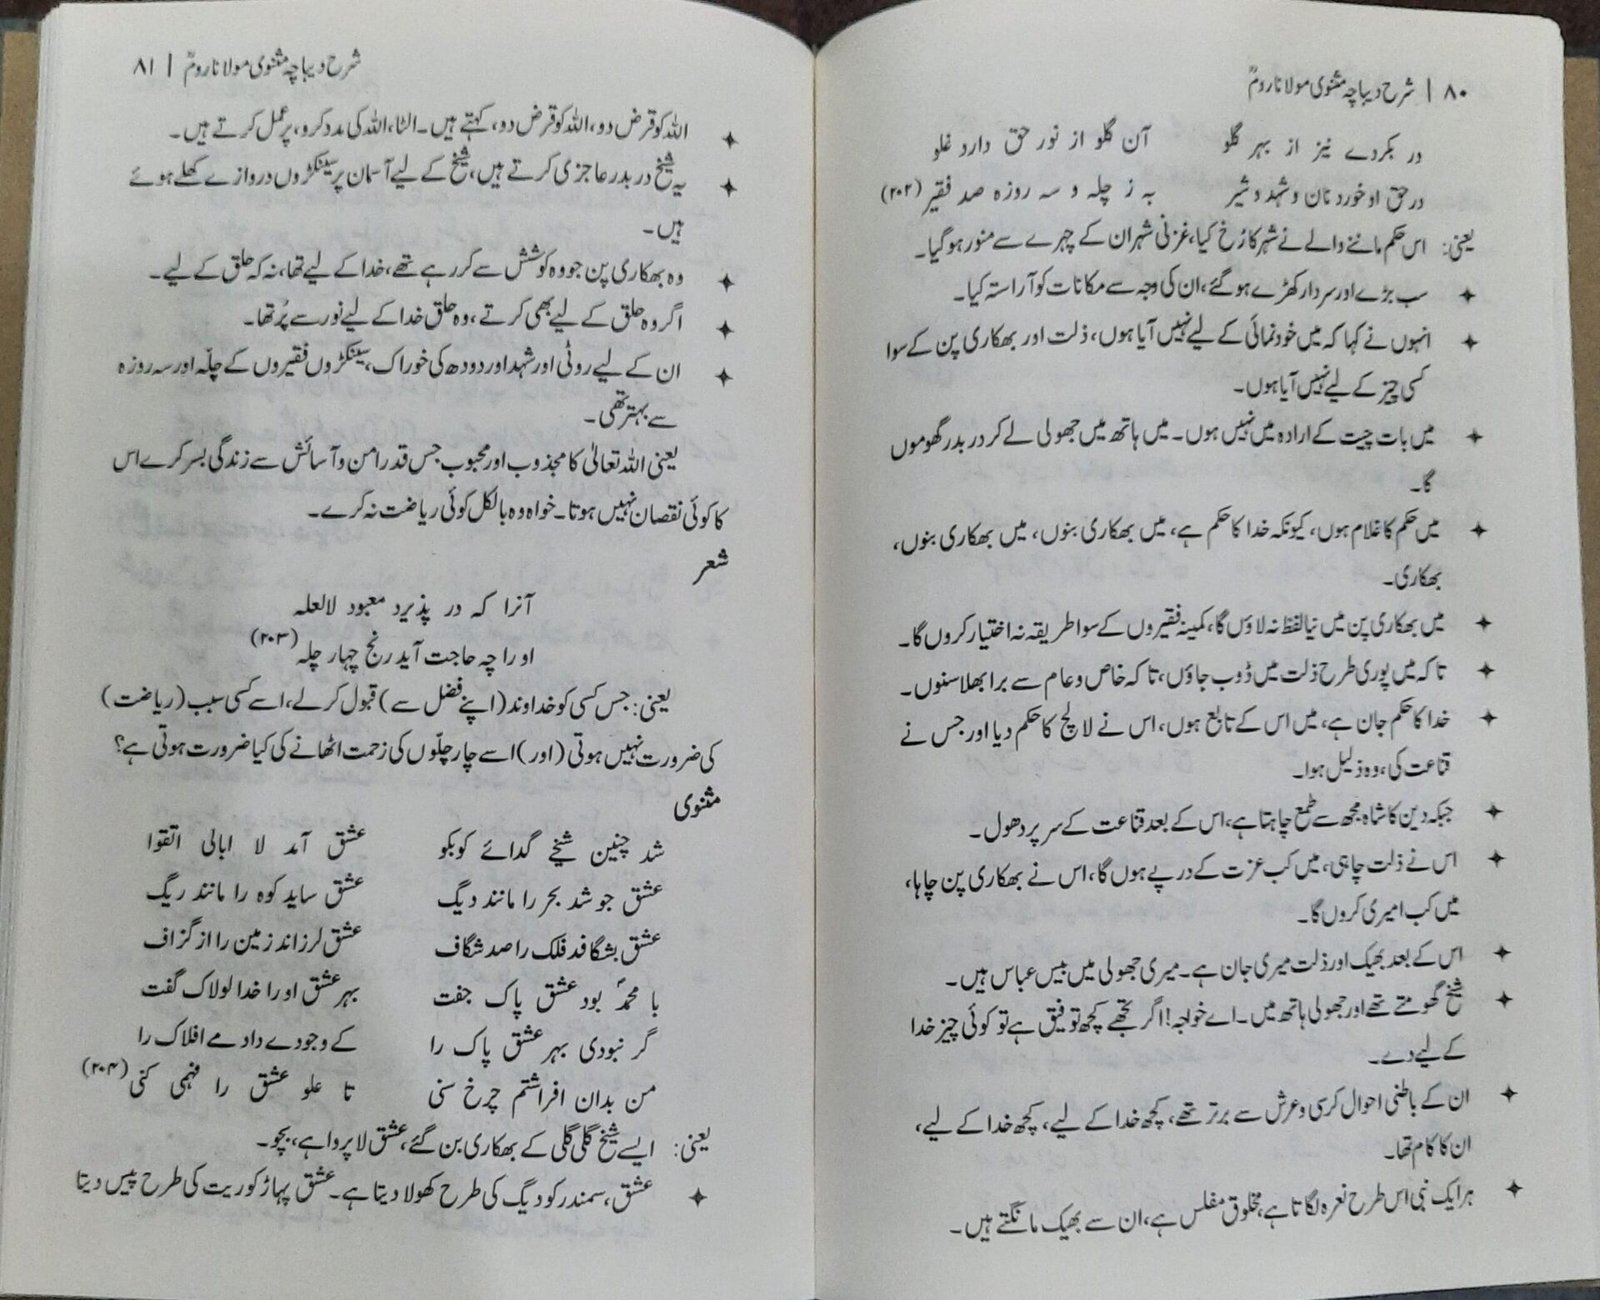 ۸۰ | شرح دیباچہ مثنوی مولانا رومؒ
در بکردے نیز از بہر گلو آن گلو از نور حق دارد غلو
در حق او خورد نان و شہد و شیر بہ ز چلہ و سہ روزہ صد فقیر (۲۰۲)
یعنی: اس حکم ماننے والے نے شہر کا رُخ کیا، غزنی شہر ان کے چہرے سے منور ہو گیا۔
✦ سب بڑے اور سردار کھڑے ہو گئے، ان کی وجہ سے مکانات کو آراستہ کیا۔
✦ انہوں نے کہا کہ میں خودنمائی کے لیے نہیں آیا ہوں، ذلت اور بھکاری پن کے سوا
کسی چیز کے لیے نہیں آیا ہوں۔
✦ میں بات چیت کے ارادہ میں نہیں ہوں۔ میں ہاتھ میں جھولی لے کر در بدر گھوموں
گا۔
✦ میں حکم کا غلام ہوں، کیونکہ خدا کا حکم ہے، میں بھکاری بنوں، میں بھکاری بنوں،
بھکاری۔
✦ میں بھکاری پن میں نیا لفظ نہ لاؤں گا، کمینہ فقیروں کے سوا طریقہ نہ اختیار کروں گا۔
✦ تاکہ میں پوری طرح ذلت میں ڈوب جاؤں، تاکہ خاص و عام سے برا بھلا سنوں۔
✦ خدا کا حکم جان ہے، میں اس کے تابع ہوں، اس نے لالچ کا حکم دیا اور جس نے
قناعت کی، وہ ذلیل ہوا۔
✦ جبکہ دین کا شاہ مجھ سے طمع چاہتا ہے، اس کے بعد قناعت کے سر پر دھول۔
✦ اس نے ذلت چاہی، میں کب عزت کے درپے ہوں گا، اس نے بھکاری پن چاہا،
میں کب امیری کروں گا۔
✦ اس کے بعد بھیک اور ذلت میری جان ہے۔ میری جھولی میں بیس عباس ہیں۔
✦ شیخ گھومتے تھے اور جھولی ہاتھ میں۔ اے خواجہ! اگر تجھے کچھ توفیق ہے تو کوئی چیز خدا
کے لیے دے۔
✦ ان کے باطنی احوال کرسی و عرش سے برتر تھے، کچھ خدا کے لیے، کچھ خدا کے لیے،
ان کا کام تھا۔
✦ ہر ایک نبی اس طرح نعرہ لگاتا ہے، مخلوق مفلس ہے، ان سے بھیک مانگتے ہیں۔
شرح دیباچہ مثنوی مولانا رومؒ | ۸۱
✦ اللہ کو قرض دو، اللہ کو قرض دو، کہتے ہیں۔ الٹا، اللہ کی مدد کرو، پر عمل کرتے ہیں۔
✦ یہ شیخ در بدر عاجزی کرتے ہیں، شیخ کے لیے آسمان پر سینکڑوں دروازے کھلے ہوئے
ہیں۔
✦ وہ بھکاری پن جو وہ کوشش سے کر رہے تھے، خدا کے لیے تھا، نہ کہ حلق کے لیے۔
✦ اگر وہ حلق کے لیے بھی کرتے، وہ حلق خدا کے لیے نور سے پُر تھا۔
✦ ان کے لیے روٹی اور شہد اور دودھ کی خوراک، سینکڑوں فقیروں کے چلّہ اور سہ روزہ
سے بہتر تھی۔
یعنی اللہ تعالیٰ کا مجذوب اور محبوب جس قدر امن و آسائش سے زندگی بسر کرے اس
کا کوئی نقصان نہیں ہوتا۔ خواہ وہ بالکل کوئی ریاضت نہ کرے۔
شعر
آنرا کہ در پذیرد معبود لالعلہ
او را چہ حاجت آید رنج چہار چلہ (۲۰۳)
یعنی: جس کسی کو خداوند (اپنے فضل سے) قبول کر لے، اسے کسی سبب (ریاضت)
کی ضرورت نہیں ہوتی (اور) اسے چار چلّوں کی زحمت اٹھانے کی کیا ضرورت ہوتی ہے؟
مثنوی
شد چنین شیخے گدائے کوبکو عشق آمد لا ابالی اتقوا
عشق جو شد بحر را مانند دیگ عشق ساید کوہ را مانند ریگ
عشق بشگافد فلک را صد شگاف عشق لرزاند زمین را از گزاف
با محمدؐ بود عشق پاک جفت بہر عشق او را خدا لولاک گفت
گر نبودی بہر عشق پاک را کے وجودے دادمے افلاک را
من بدان افراشتم چرخ سنی تا علو عشق را فہمی کنی (۲۰۴)
یعنی: ایسے شیخ گلی گلی کے بھکاری بن گئے، عشق لا پروا ہے، بچو۔
✦ عشق، سمندر کو دیگ کی طرح کھولا دیتا ہے۔ عشق پہاڑ کو ریت کی طرح پیس دیتا